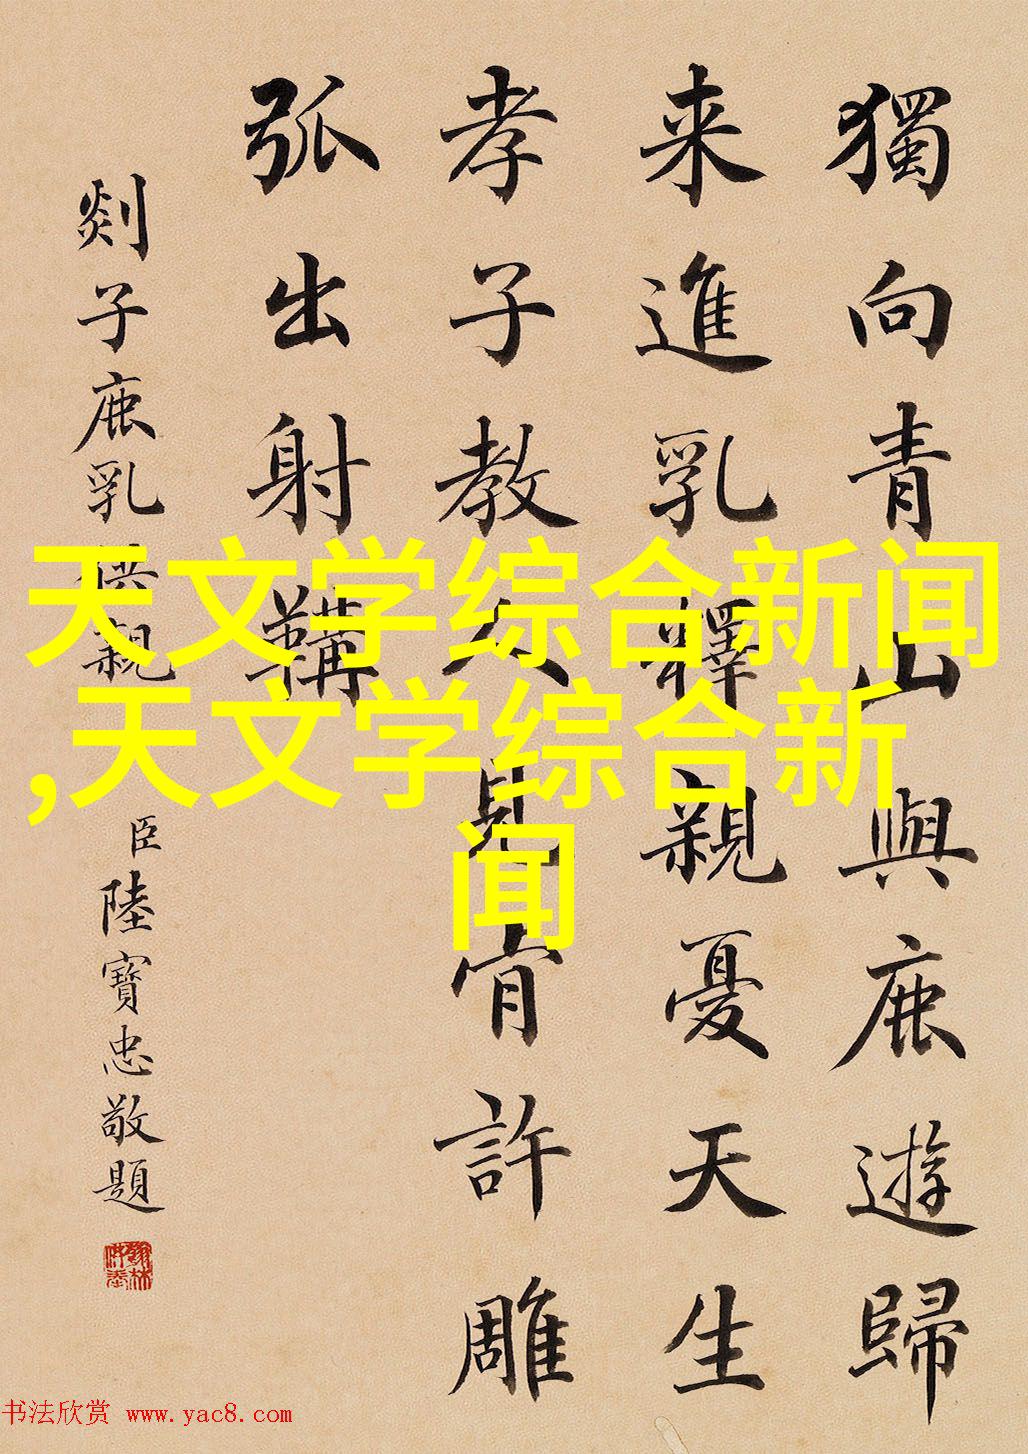 獨向青山與鹿遊歸
来進乳釋親憂天生
孝子教人見宵許雕
弧出射鞲
剡子鹿乳供親
臣陸寶忠敬題
天文学综合新闻
,天文学综合新
闻
书法欣赏 www.yac8.com